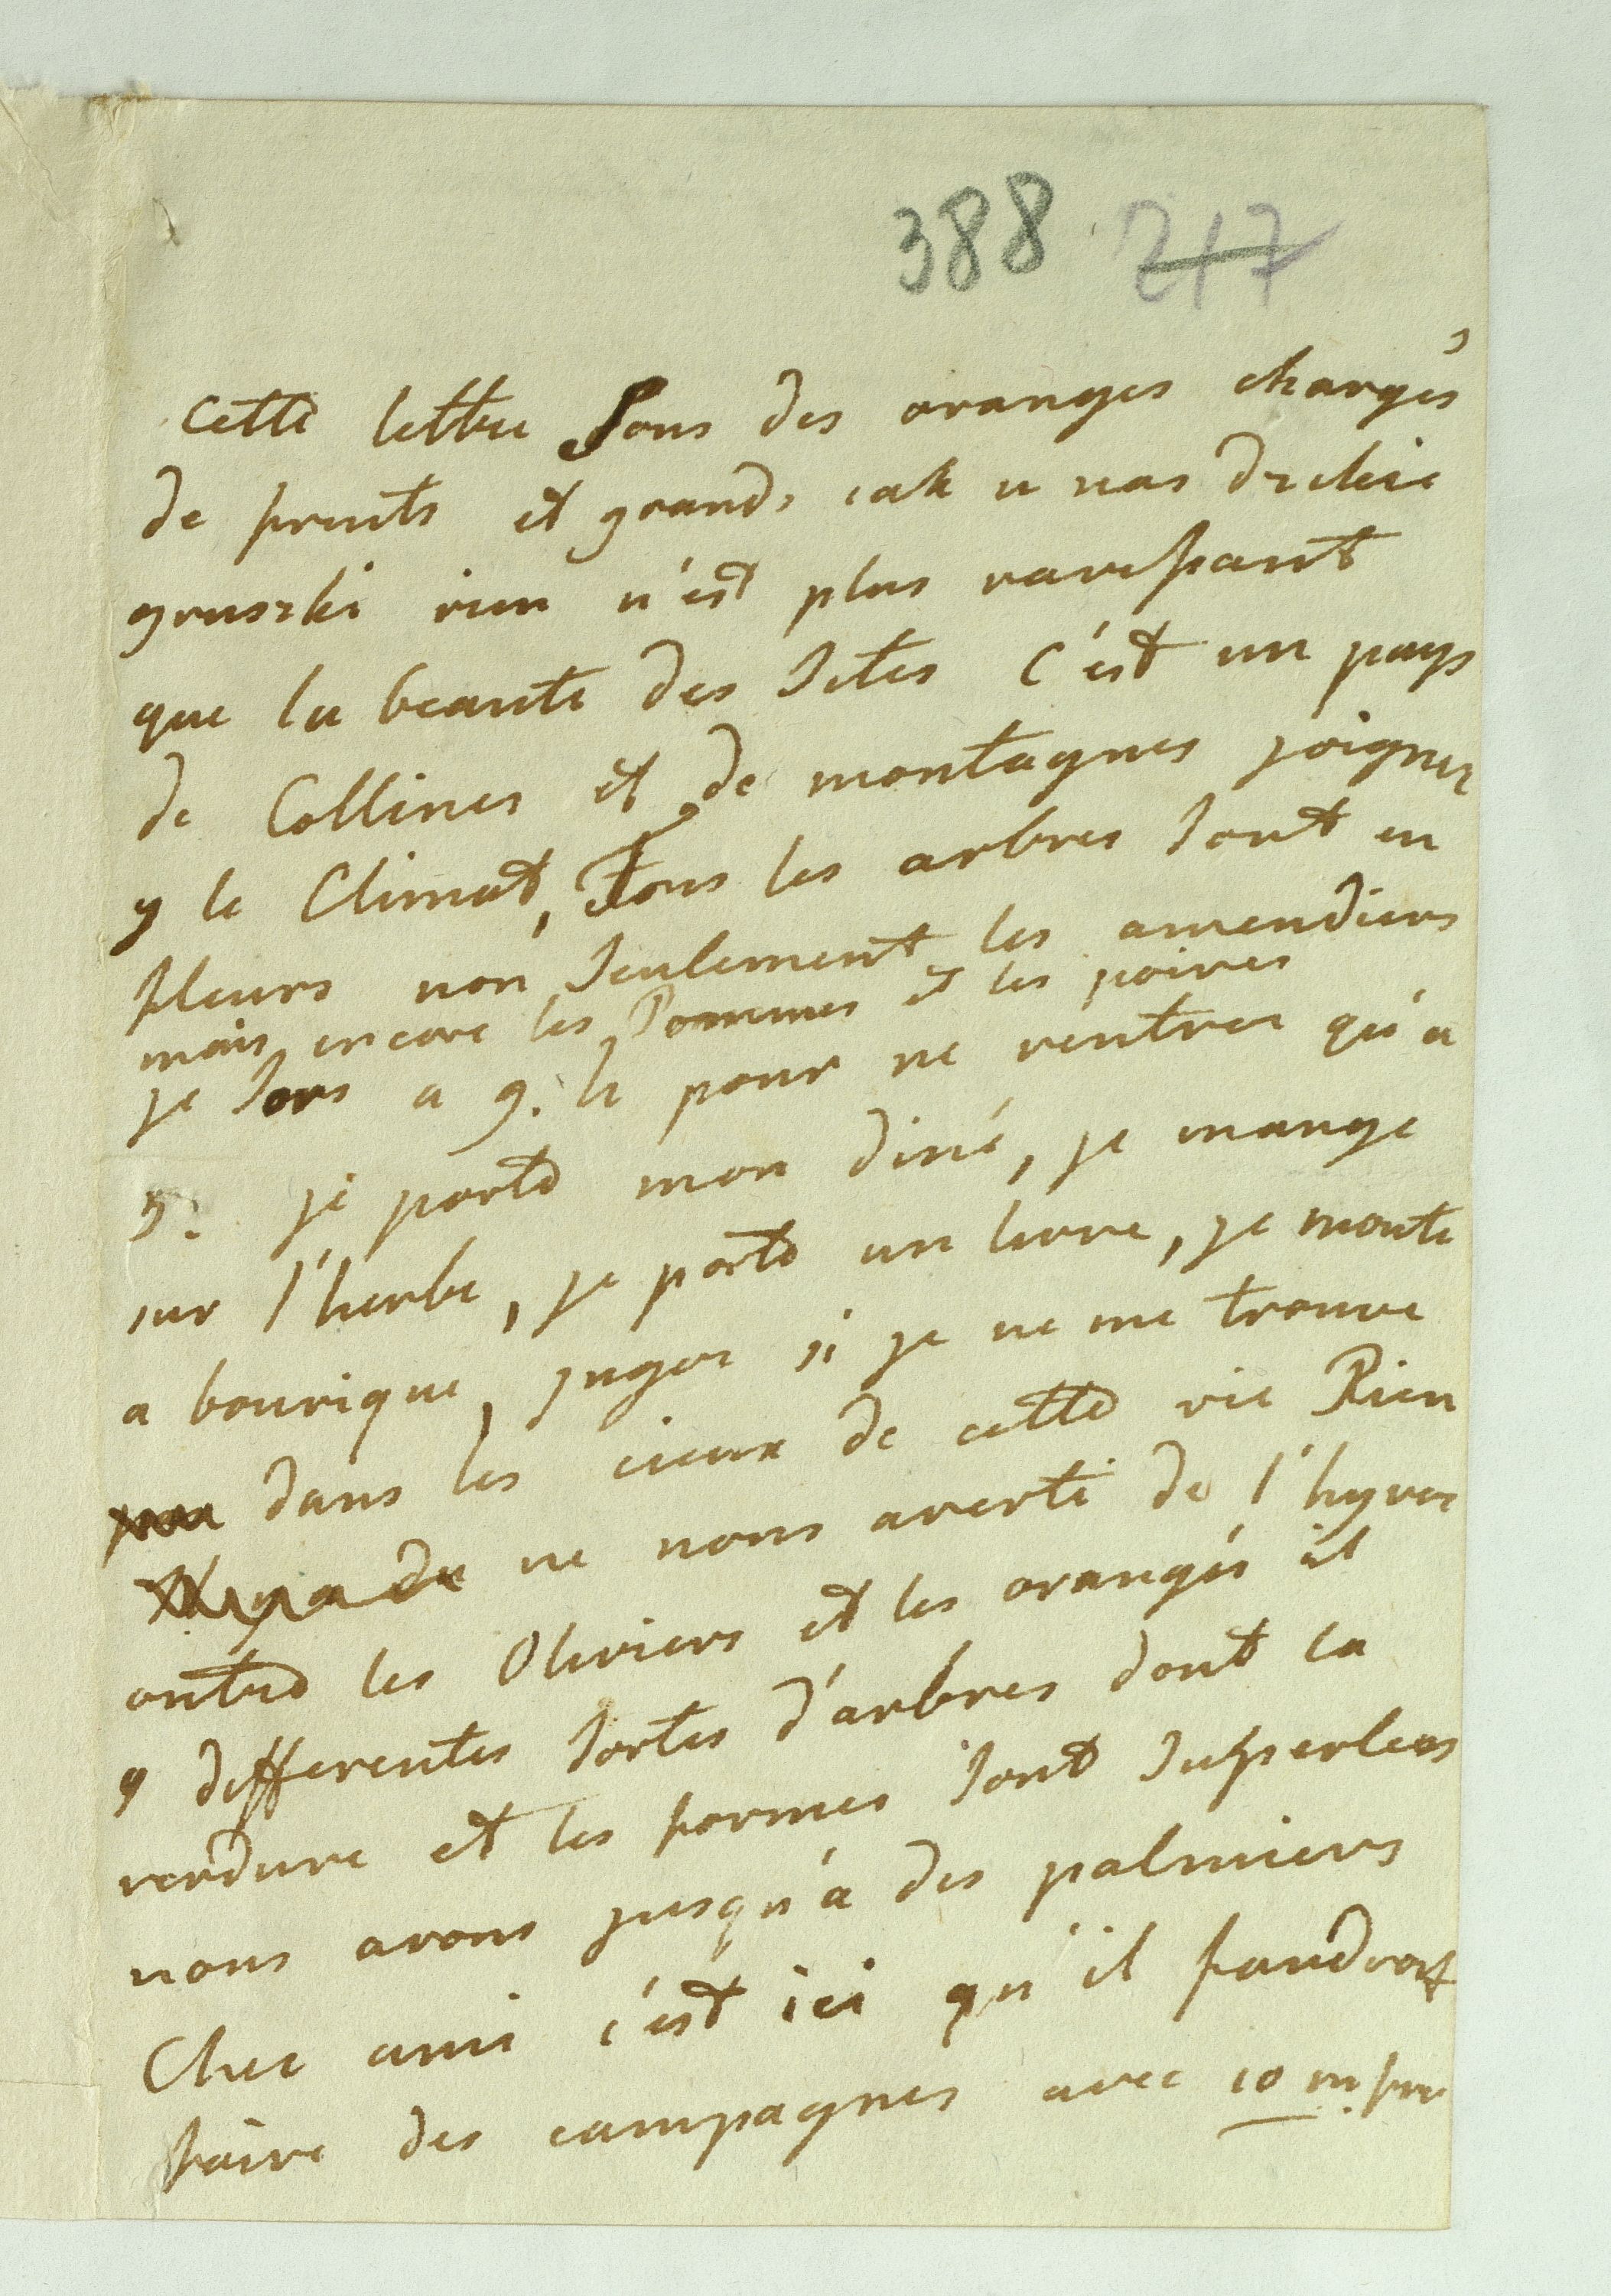 388 217
cette lettre Sous des oranges chargés
de fruits et grands iak u nas dzikie
gruszki rien n'est plus ravissant
que la beauté des Sites C'est un pays
de Collines et de montagnes joignez
y le Climat, Tous les arbres Sont en
fleurs non Seulement les amendiers
mais encore les Pommes et les poires
je Sors a 9. h pour ne rentrer qu'a
5. je porte mon diné, je mange
sur l'herbe, je porte un livre, je monte
a bourique, jugez si je ne me trouve
dans les cieux de cette vie Rien
ne nous averti de l'hyver
outre les Oliviers et les orangés il
y differentes Sortes d'arbres dont la
verdure et les formes Sont Superbes
nous avons jusqu'a des palmiers
Cher ami c'est ici qu'il faudroit
faire des campagnes avec 10 m.